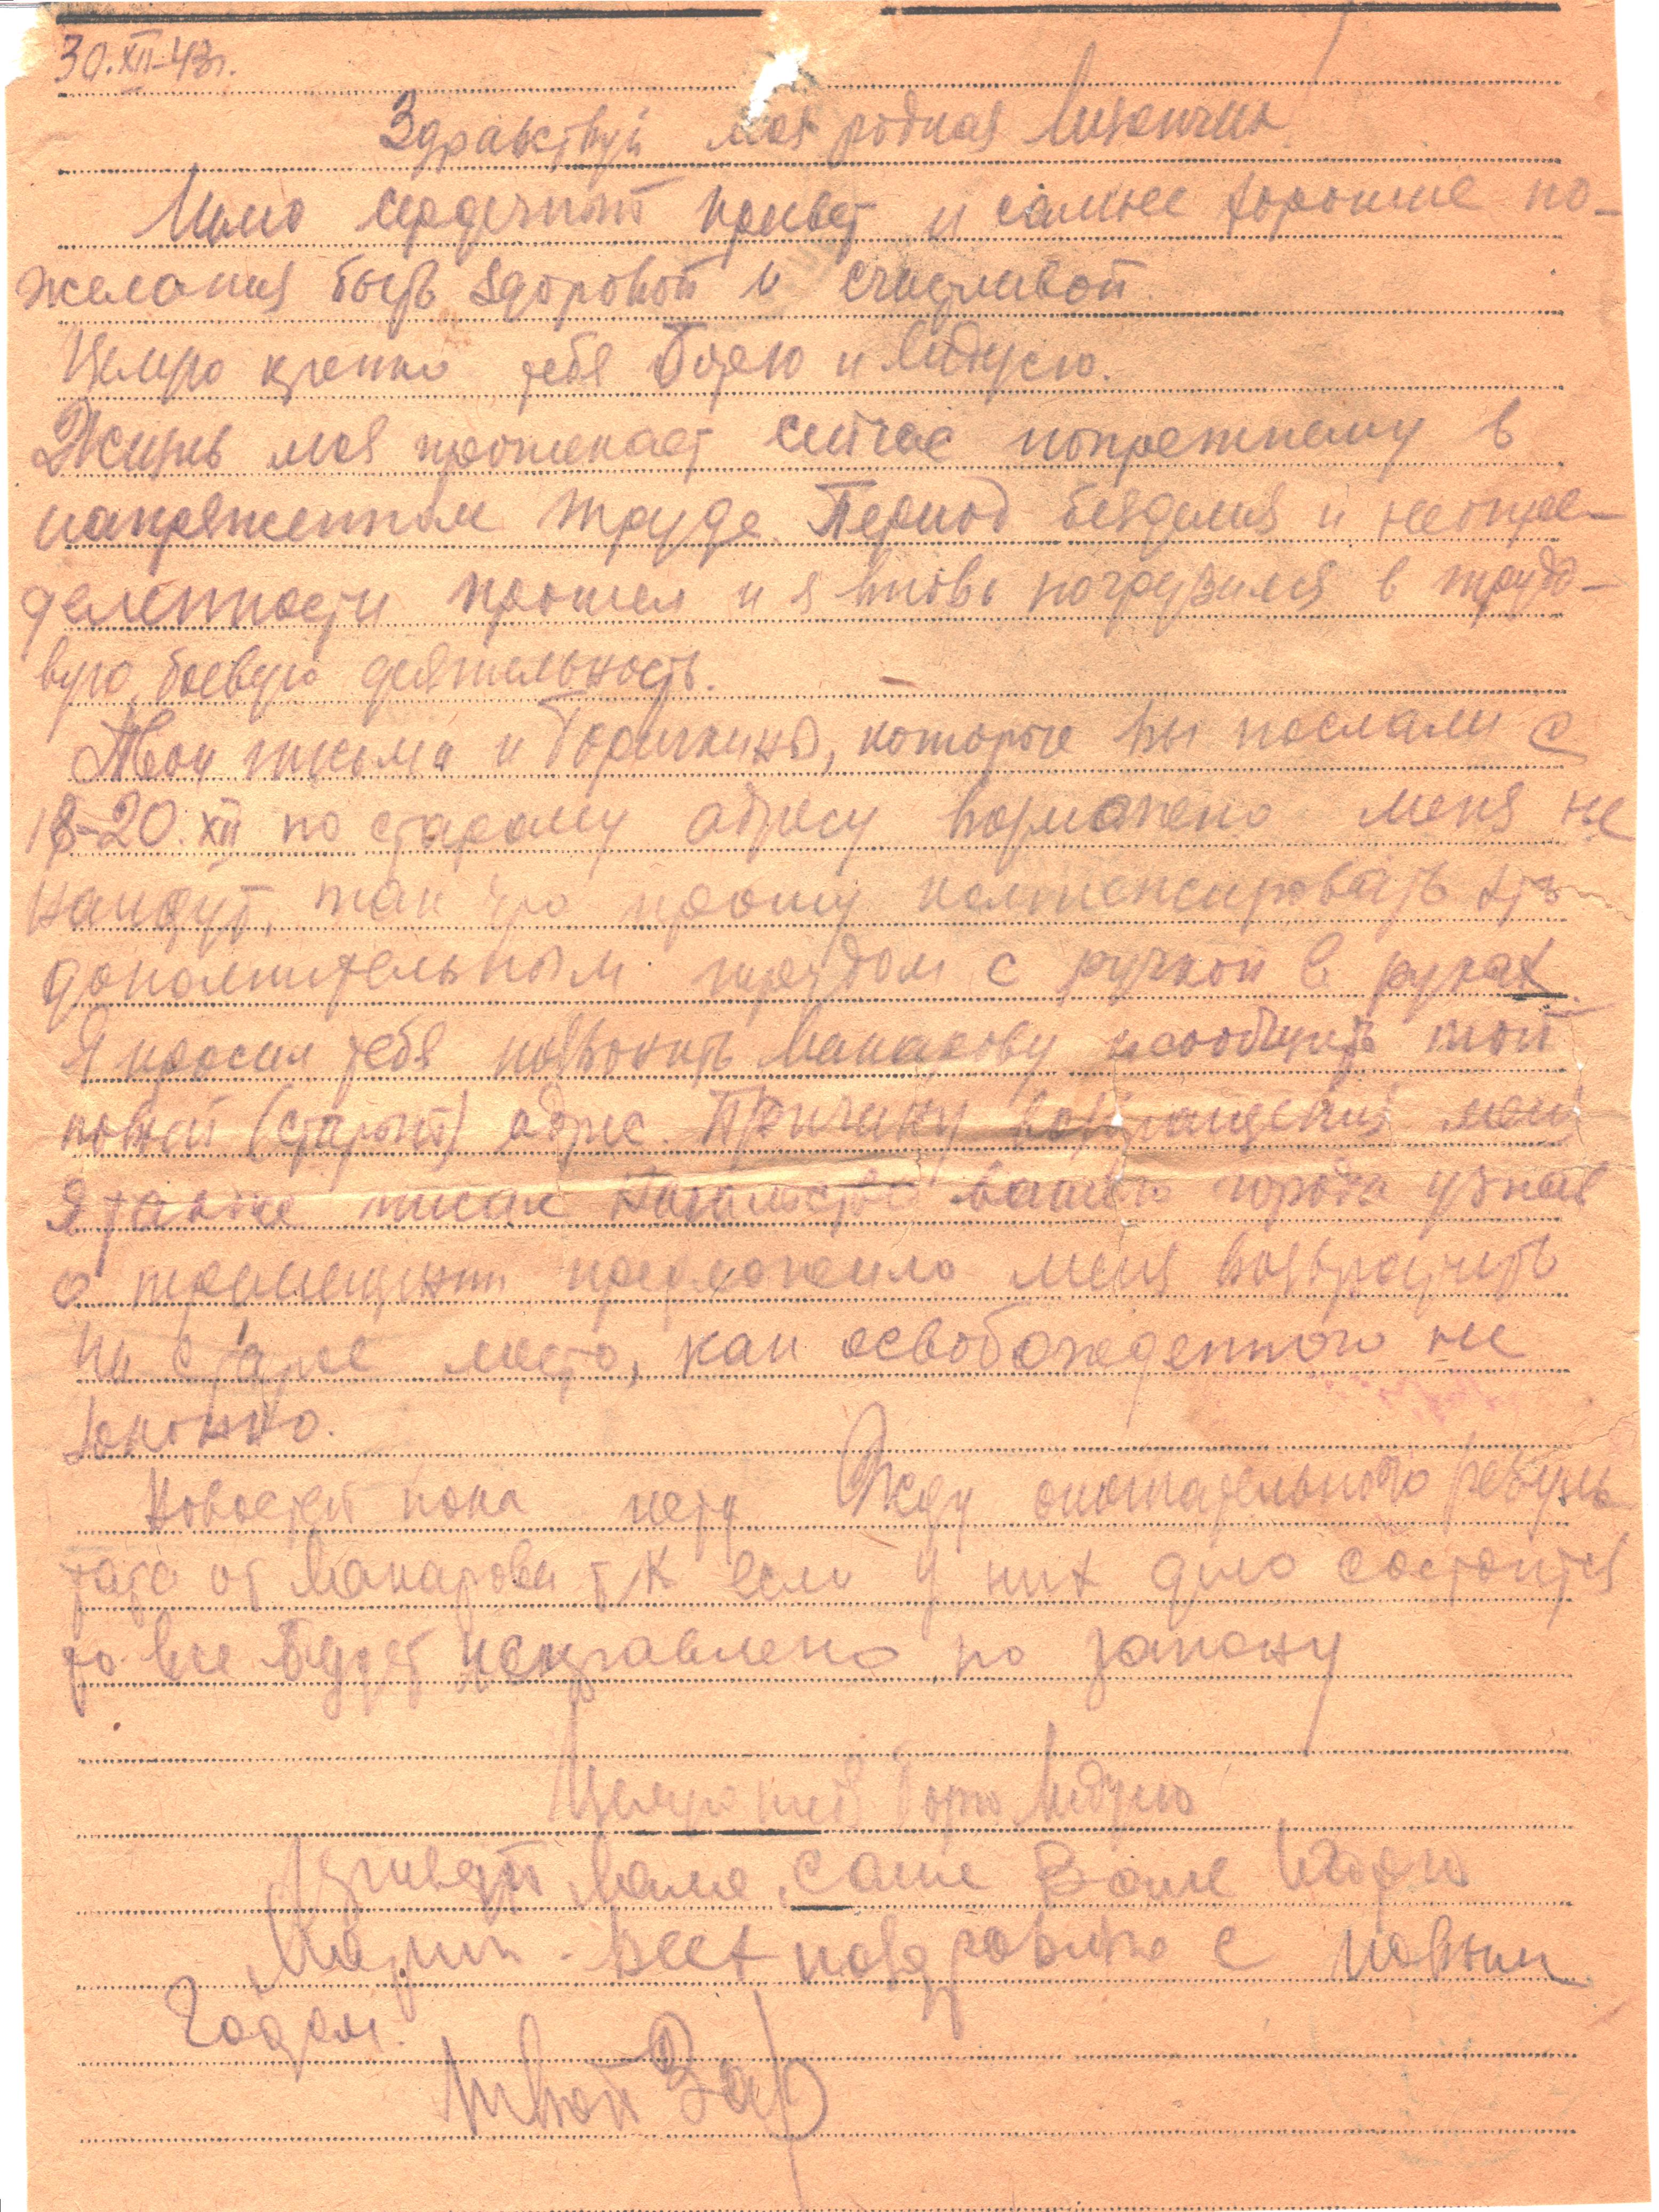 30.XII-43г.
Здравствуй моя родная Лизочка.
Шлю сердечный привет и самые хорошие по-
желания быть здоровой и счастливой.
Целую крепко тебя Борю и Лидусю.
Жизнь моя протекает сейчас попрежнему в
напряженном труде. Период безделия и неопре-
деленности прошел и я вновь погрузился в трудо-
вую, боевую деятельность.
Твои письма и Боричкины, которые вы послали с
18-20.XII по старому адресу вероятно меня не
найдут, так что прошу компенсировать их
дополнительным трудом с ручкой в руках.
Я просил тебя позвонить Макарову и сообщить мой
новый (старый) адрес. Причину возвращения меня
я также писал Начальство вашего города узнав
о перемещении предложило меня возвратить
на старое место, как освобожденного не
законно.
Новостей пока нету Жду окончательного резуль
тата от Макарова т к если у них дело состоится
то все будет исправлено по закону
Целую тебя Борю Лидусю
Привет Маме, Саше Ване Игорю
Марии - всех поздравляю с новым
Годом.
Твой